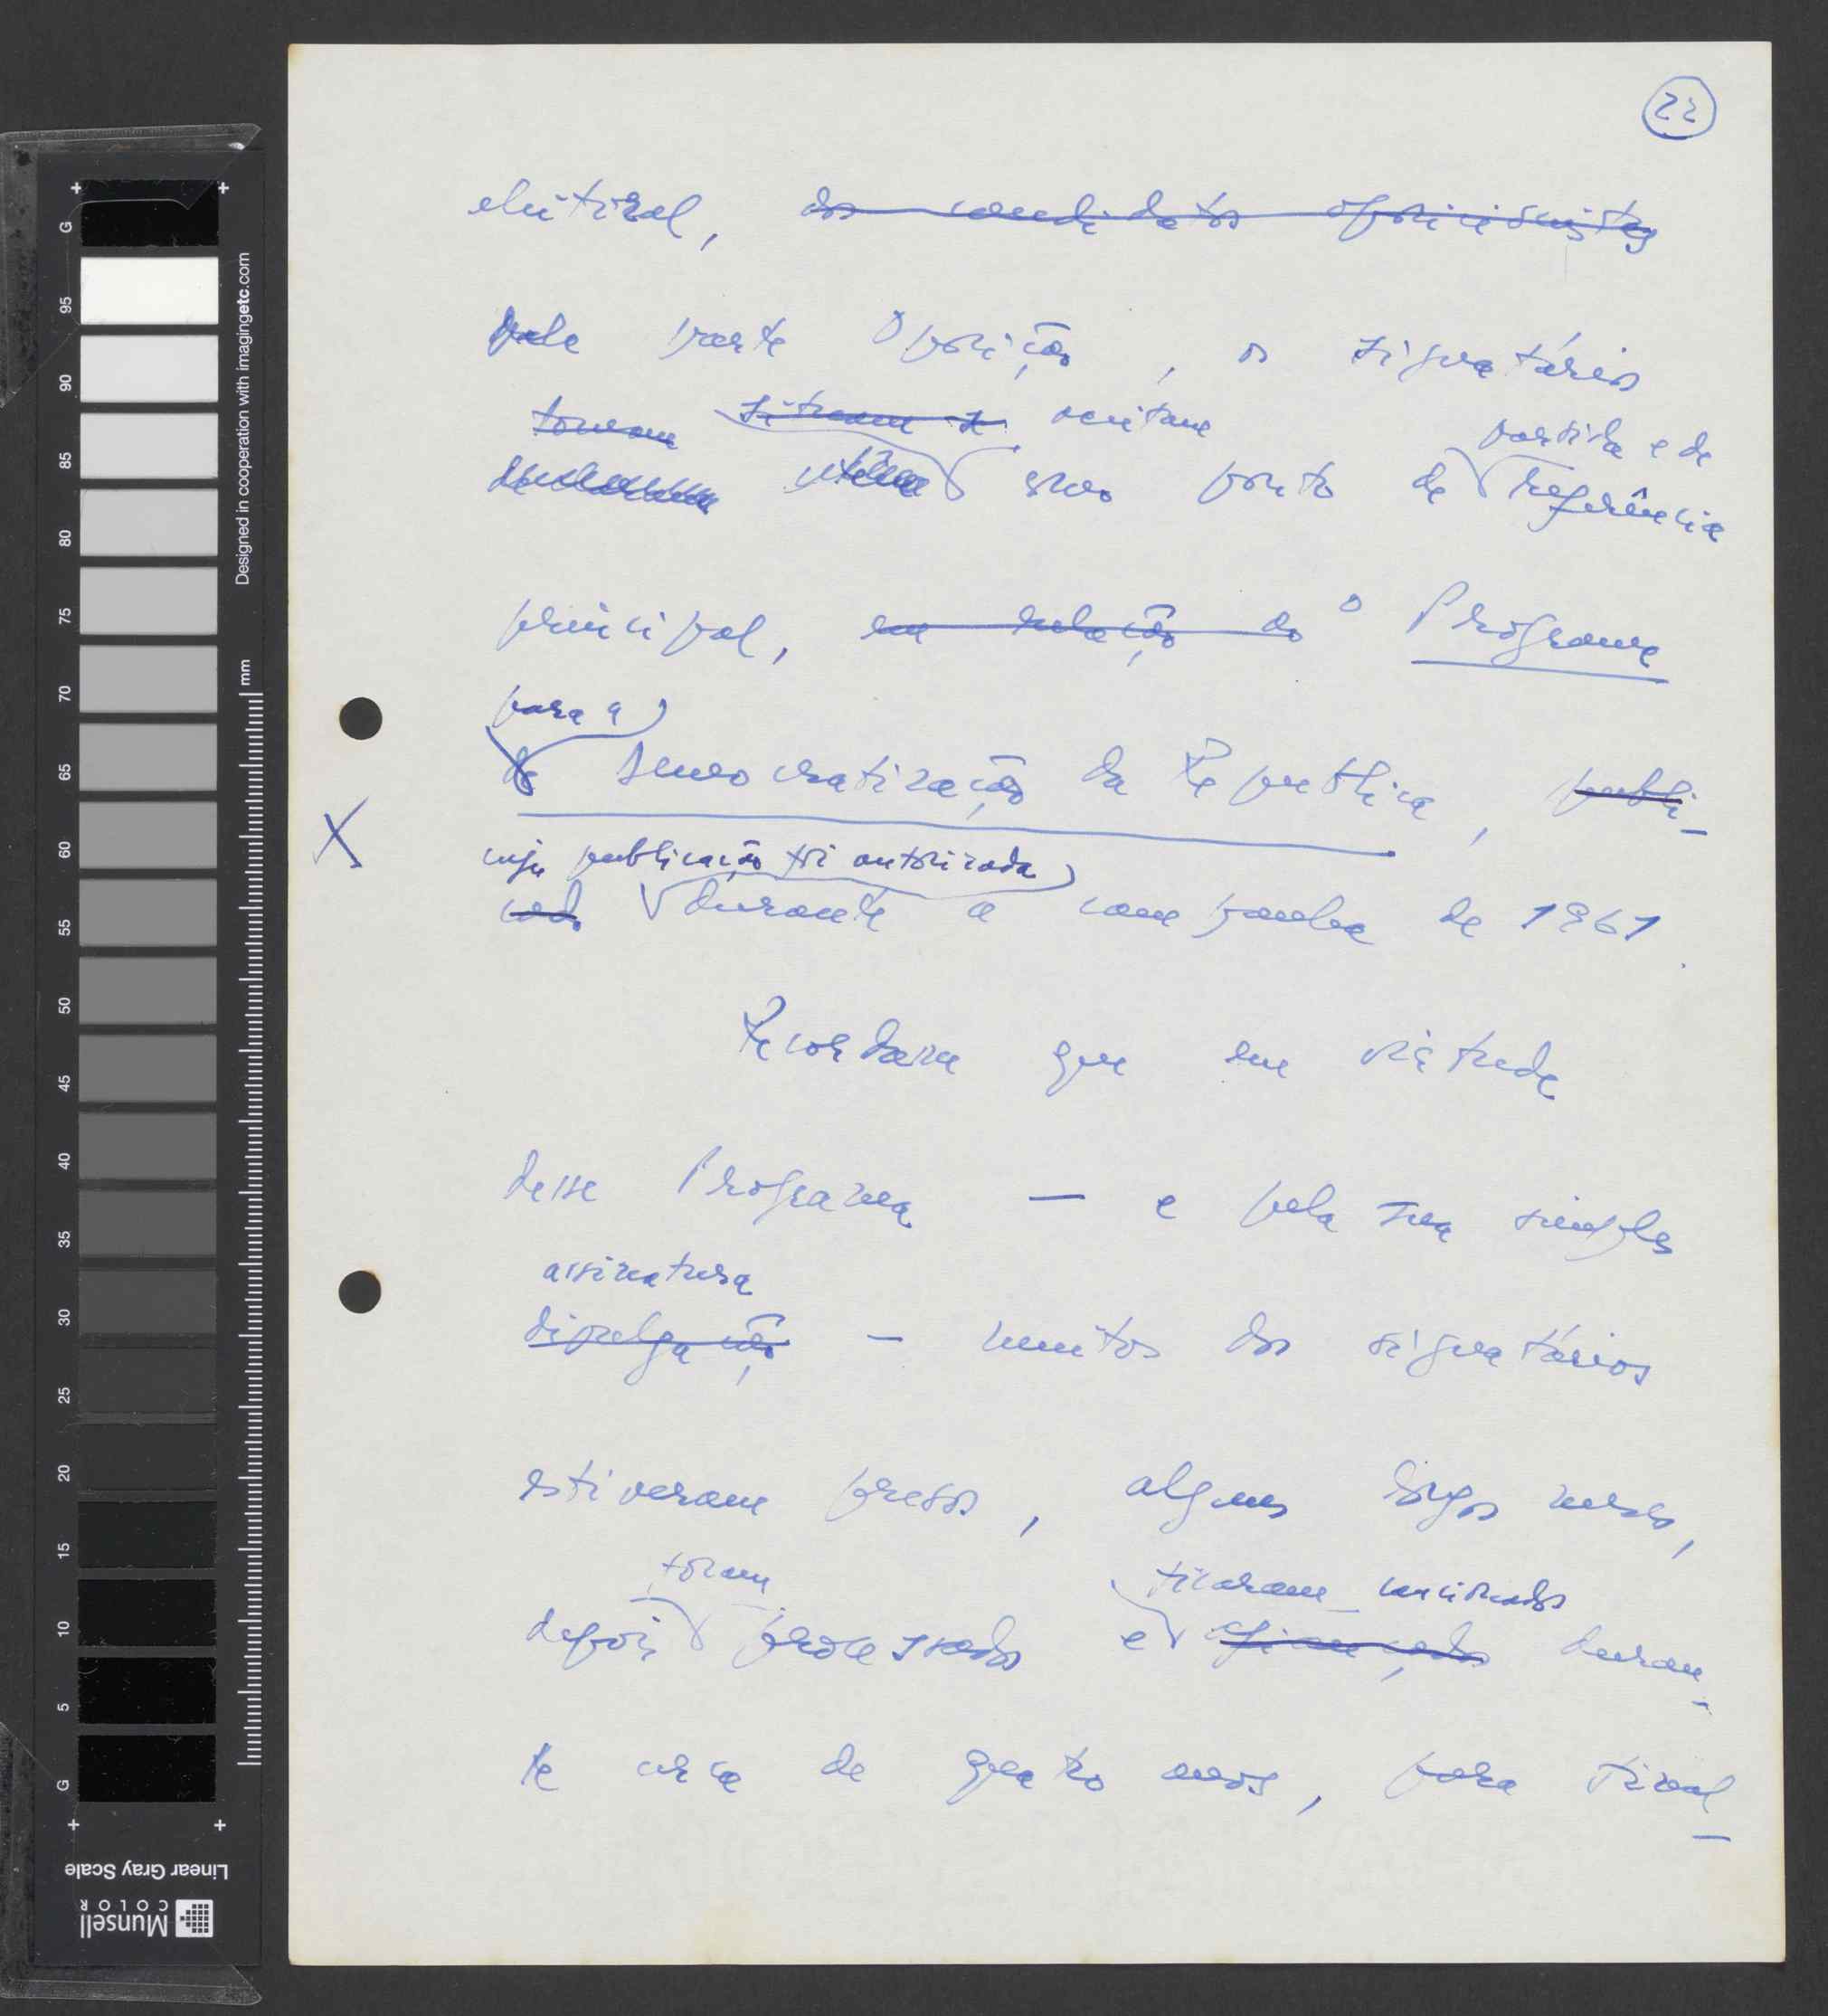 22
eleitoral, dos candidatos oposicionistas
pela parte Oposição, os signatários
tomam situam-se aceitam partida e de
como ponto de referência
principal, em relação ao o Programa
para a
de Democratização da República, publi-
X
cuja publicação foi autorizada
cado durante a campanha de 1961.
Recordam que em virtude
desse Programa — e pela sua simples
assinatura
divulgação — muitos dos signatários
estiveram presos, alguns longos meses,
foram ficaram caucionados
depois processados e afiançados duran-
te cerca de quatro anos, para final-
G 95 90 85 80 75 70 65 60 55 50 45 40 35 30 25 20 15 10 5 G
mm
Designed in cooperation with imagingetc.com
Linear Gray Scale
Munsell
COLOR